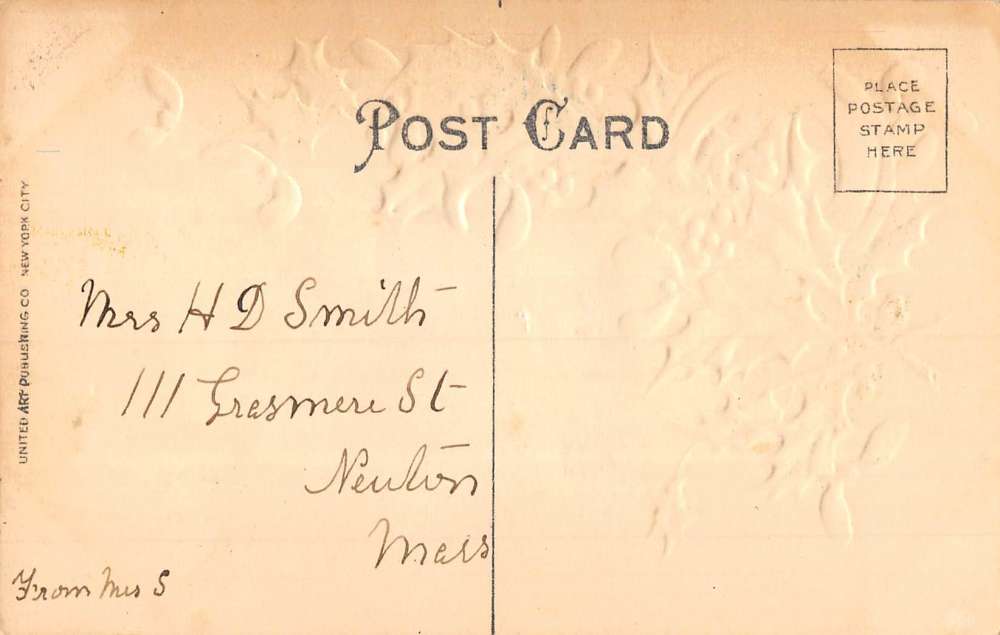 POST CARD
PLACE
POSTAGE
STAMP
HERE
UNITED ART PUBLISHING CO NEW YORK CITY
Mrs H D Smith
111 Grasmere St
Newton
Mass
From Mrs S